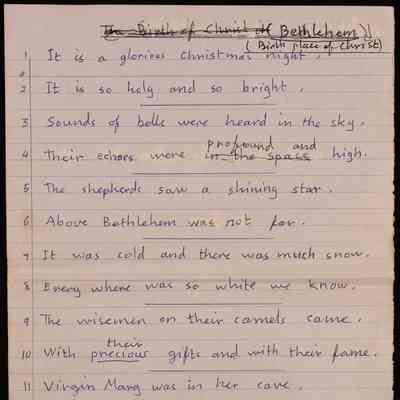 The Birth of Christ at Bethlehem
(Birth place of Christ)
1 It is a glorious Christmas night.
2 It is so holy and so bright.
3 Sounds of bells were heard in the sky.
profound and
4 Their echoes were in the space high.
5 The shepherds saw a shining star.
6 Above Bethlehem was not far.
7 It was cold and there was much snow.
8 Every where was so white we know.
9 The wisemen on their camels came.
their
10 With precious gifts and with their fame.
11 Virgin Mary was in her cave.